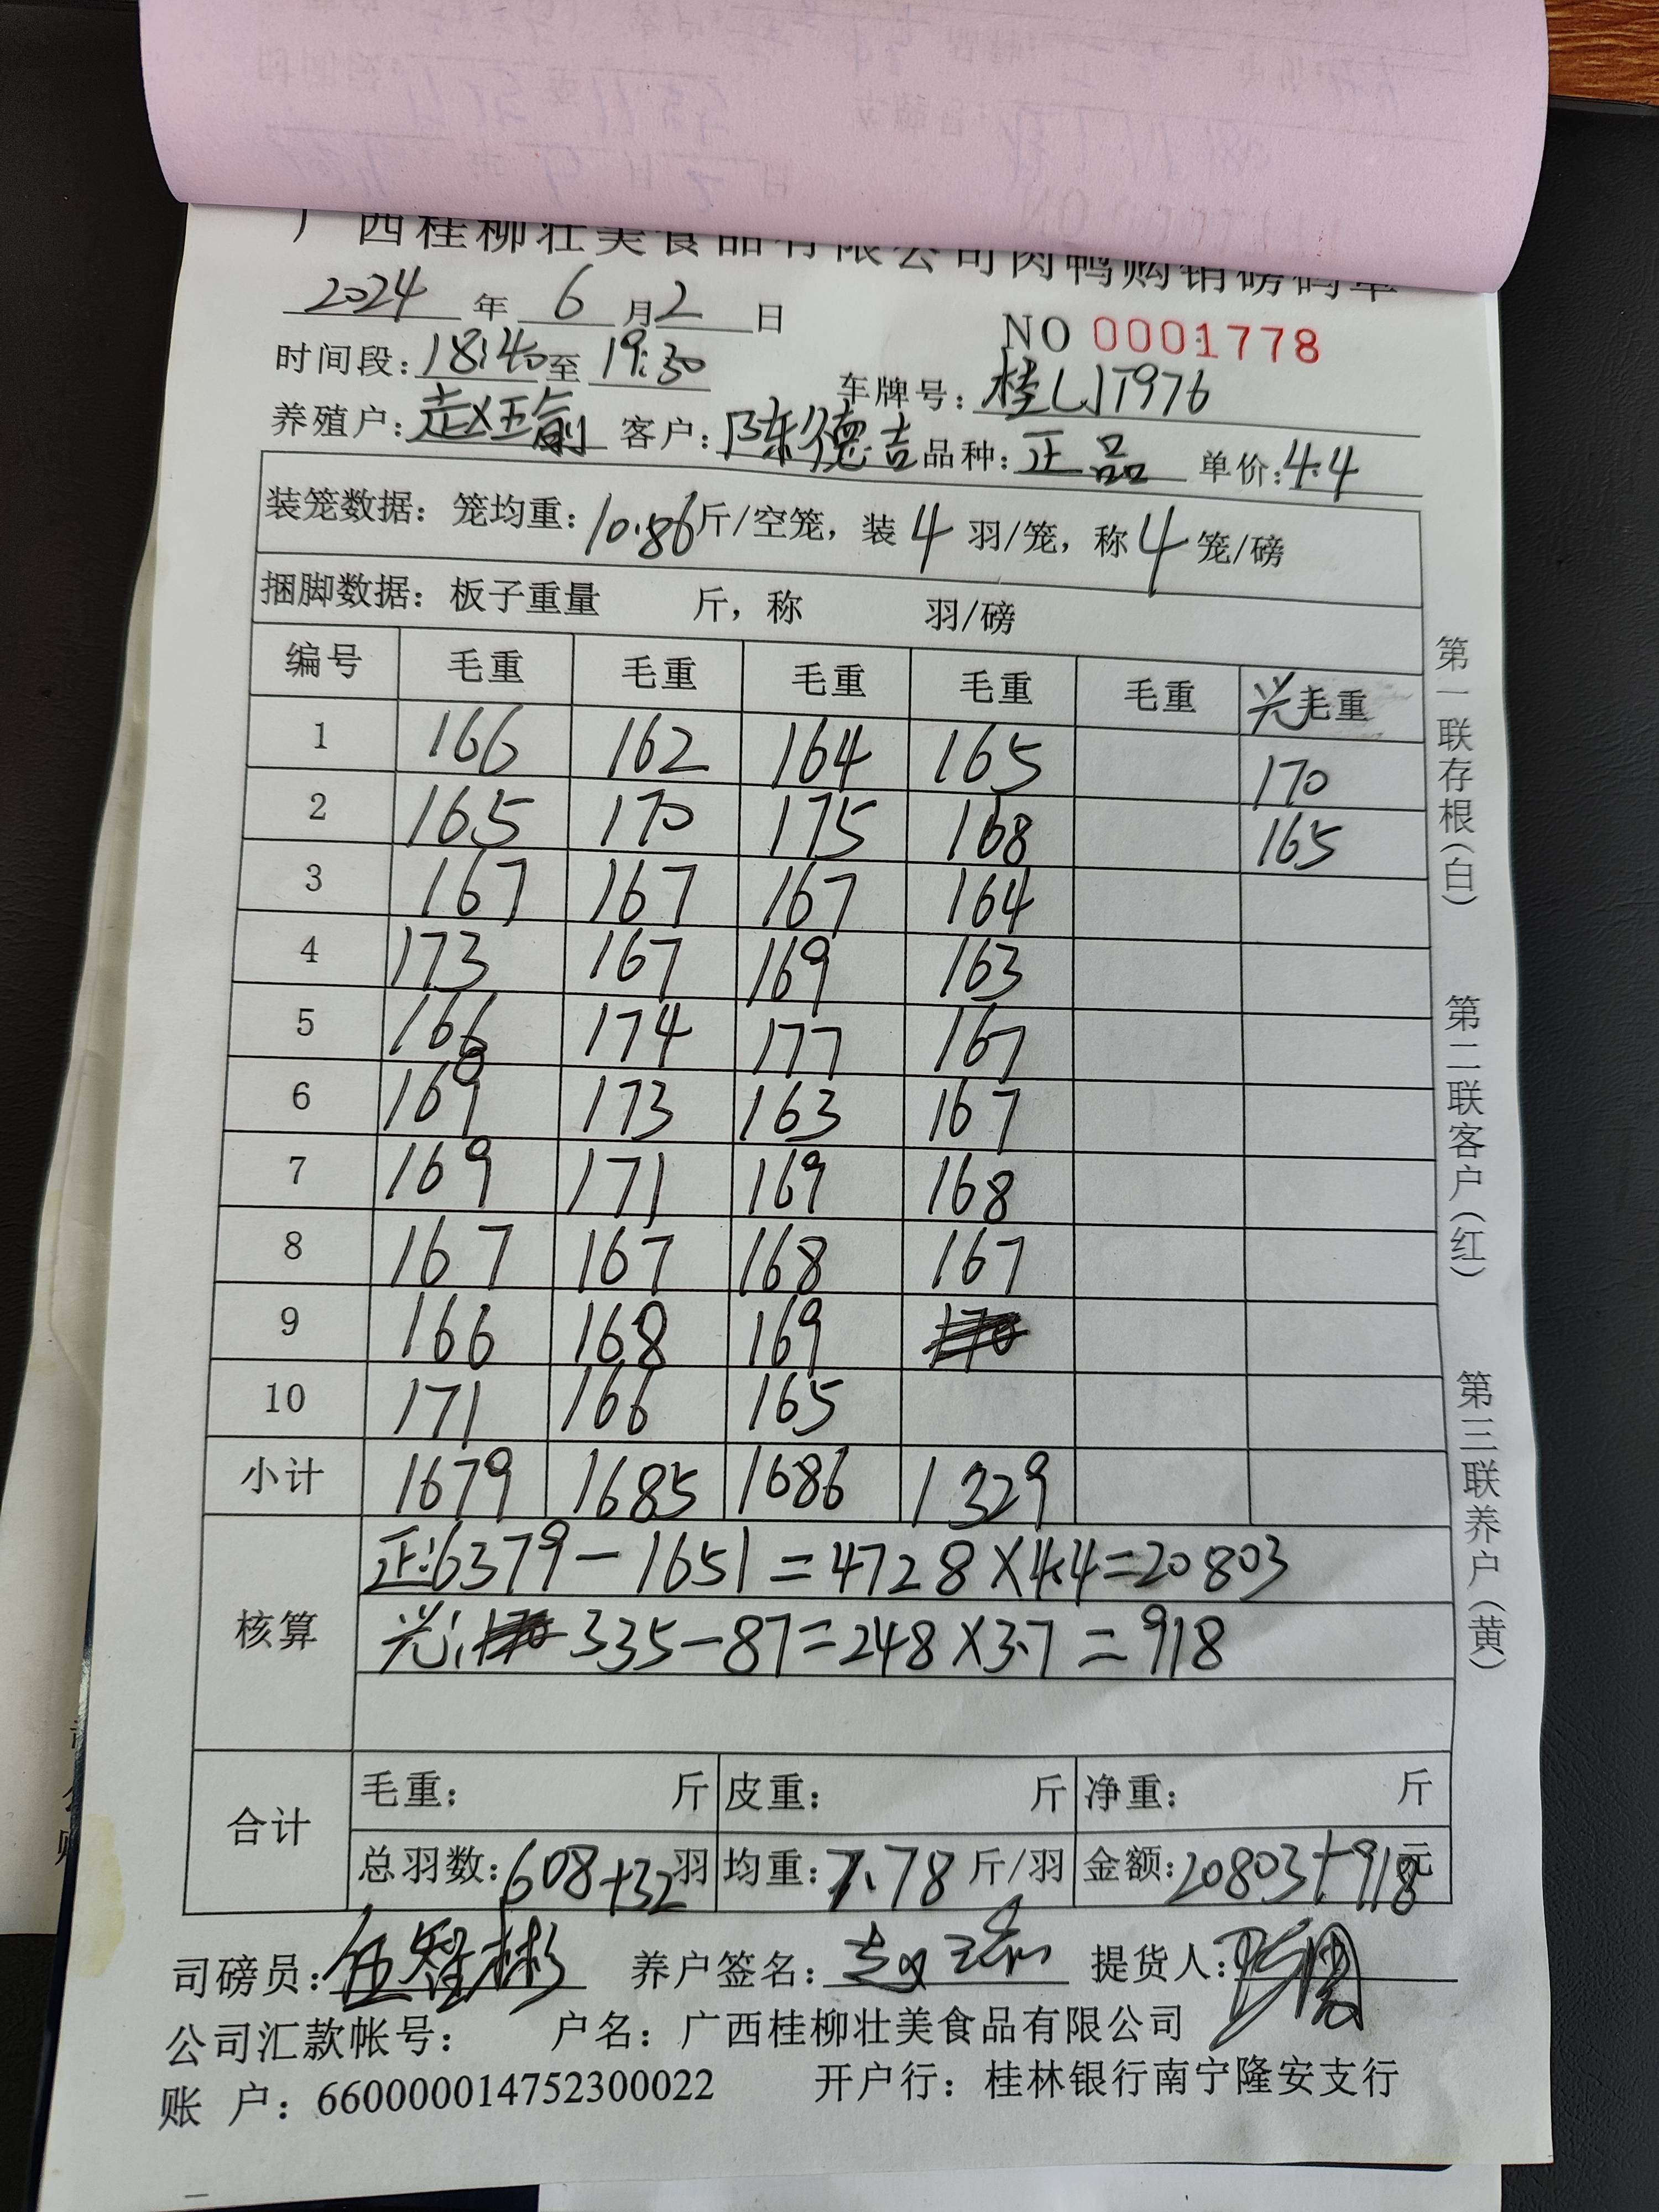 广西桂柳壮美食品有限公司肉鸭购销磅码单
2024 年 6 月 2 日
NO 0001778
时间段: 18:40 至 19:30
车牌号: 桂LJT976
养殖户: 赵玉瑜 客户: 陈德吉 品种: 正品 单价: 4.4
装笼数据: 笼均重: 10.86 斤/空笼, 装 4 羽/笼, 称 4 笼/磅
捆脚数据: 板子重量 斤, 称 羽/磅
编号 毛重 毛重 毛重 毛重 毛重 光毛重
1 166 162 164 165 170
2 165 170 175 168 165
3 167 167 167 164
4 173 167 169 163
5 166 174 177 167
6 169 173 163 167
7 169 171 169 168
8 167 167 168 167
9 166 168 169 170
10 171 166 165
小计 1679 1685 1686 1329
核算
正: 6379-1651=4728×4.4=20803
光: 170 335-87=248×3.7=918
合计
毛重: 斤 皮重: 斤 净重: 斤
总羽数: 608+32 羽 均重: 7.78 斤/羽 金额: 20803+918 元
司磅员: 伍智彬 养户签名: 提货人:
公司汇款帐号: 户名: 广西桂柳壮美食品有限公司
账 户: 660000014752300022 开户行: 桂林银行南宁隆安支行
第一联存根(白)
第二联客户(红)
第三联养户(黄)